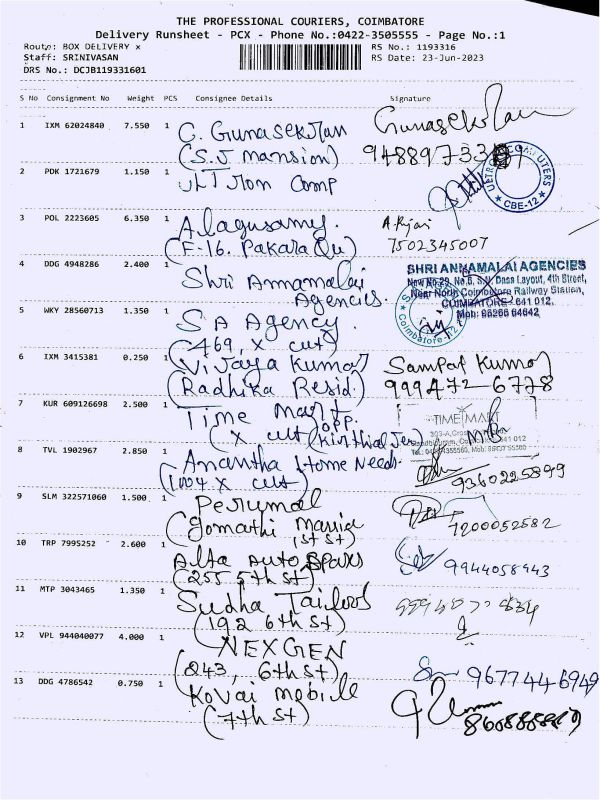 THE PROFESSIONAL COURIERS, COIMBATORE
Delivery Runsheet - PCX - Phone No.:0422-3505555 - Page No.:1
Route: BOX DELIVERY x RS No.: 1193316
Staff: SRINIVASAN RS Date: 23-Jun-2023
DRS No.: DCJB119331601
S No Consignment No Weight PCS Consignee Details Signature
1 IXM 62024840 7.550 1 C. Gunasekran Gunasekaran
(S.J mansion)
2 PDK 1721679 1.150 1 Comp
CBE-12
3 POL 2223605 6.350 1 Alagusamy.
(F-16. 7502345007
4 DDG 4948286 2.400 1 Shri Annamalai
Agencies.
SHRI ANNAMALAI AGENCIES
New No.29, No.6, S.N. Dasa Layout, 4th Street,
Near North Coimbatore Railway Station,
COIMBATORE - 641 012.
Mob: 98266 64642
Coimbatore-12
5 WKY 28560713 1.350 1 S A Agency.
(469, x cut)
6 IXM 3415381 0.250 1 Vijaya Kumar Sampat Kumar
(Radhika Resid.) 999472-6778
7 KUR 609126698 2.500 1 Time Mart TIME MART
opp.
(x cut (Kirthilal Jer)
8 TVL 1902967 2.850 1 Anantha Home Needs. 9360225899
(1004 x cut)
9 SLM 322571060 1.500 1 Perumal
(Gomathi Mansion 1st St) 7200052582
10 TRP 7995252 2.600 1 Alfa Auto Spares
(255 5th St) 9944058943
11 MTP 3043465 1.350 1 Sudha Tailors
(192 6th St)
12 VPL 944040077 4.000 1 NEXGEN
(243, 6th St) 9677446949
13 DDG 4786542 0.750 1 Kovai Mobile
(7th St)